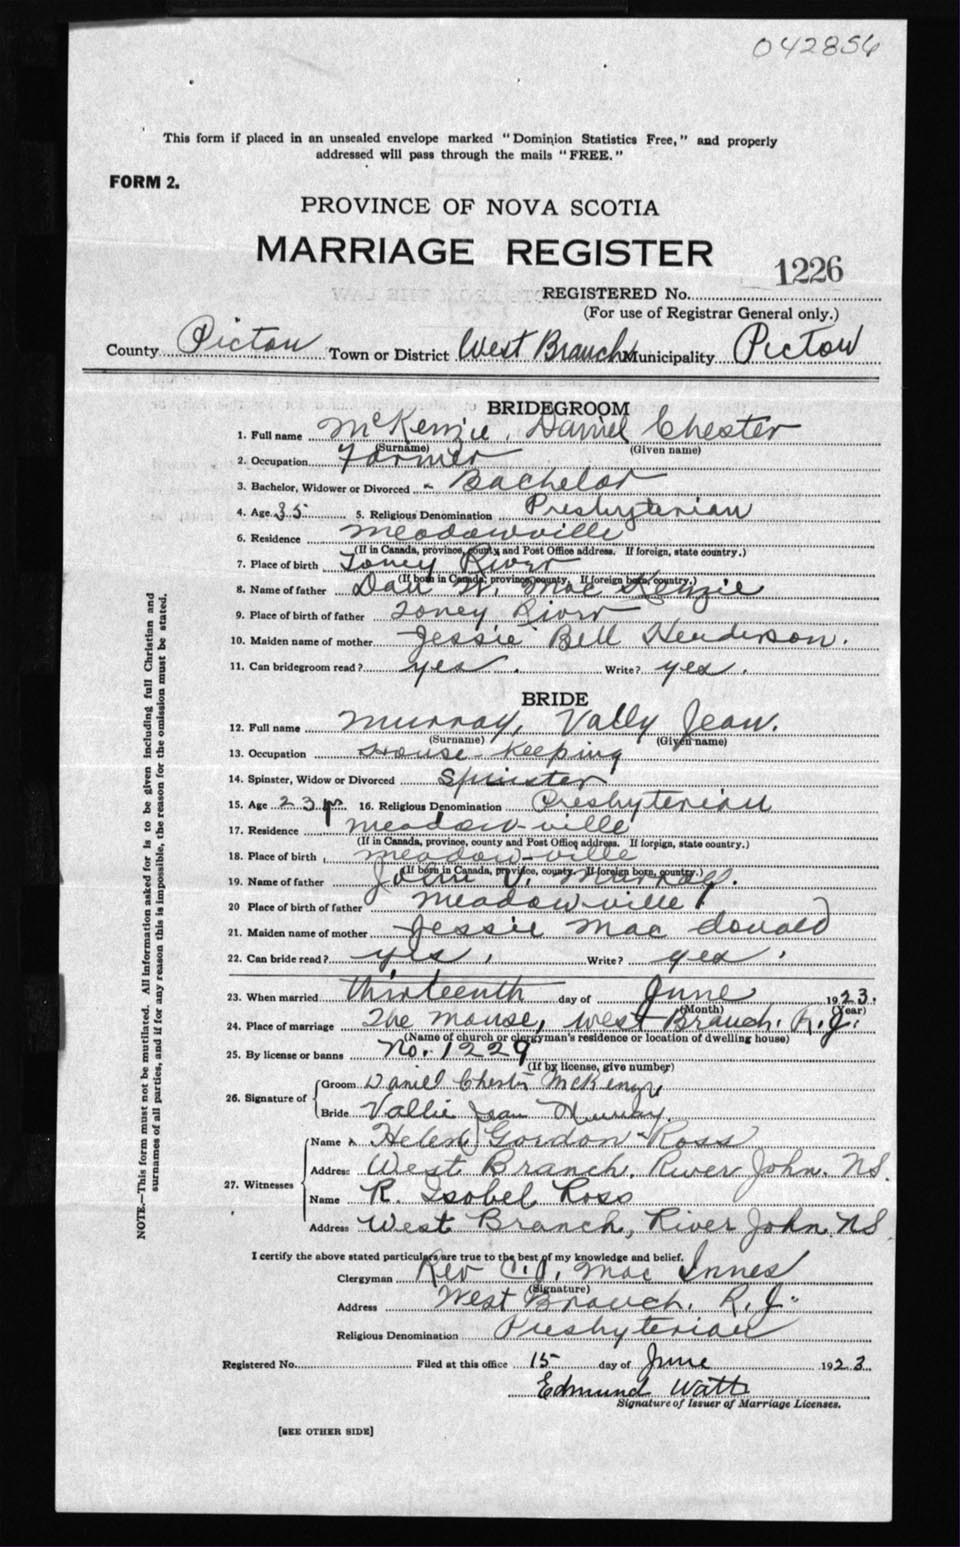 042856
This form if placed in an unsealed envelope marked "Dominion Statistics Free," and properly
addressed will pass through the mails "FREE."
FORM 2.
PROVINCE OF NOVA SCOTIA
MARRIAGE REGISTER
1226
REGISTERED No.
(For use of Registrar General only.)
County Pictou Town or District West Branch Municipality Pictou
BRIDEGROOM
1. Full name McKenzie, Daniel Chester
(Surname) (Given name)
2. Occupation Farmer
3. Bachelor, Widower or Divorced - Bachelor
4. Age 35 5. Religious Denomination Presbyterian
6. Residence Meadowville
(If in Canada, province, county and Post Office address. If foreign, state country.)
7. Place of birth Toney River
(If born in Canada; province, county. If foreign born, country.)
8. Name of father Dan W. MacKenzie
9. Place of birth of father Toney River
10. Maiden name of mother Jessie Bell Henderson.
11. Can bridegroom read? yes. Write? yes.
BRIDE
12. Full name Murray, Vally Jean.
(Surname) (Given name)
13. Occupation House-keeping
14. Spinster, Widow or Divorced Spinster
15. Age 23 16. Religious Denomination Presbyterian
17. Residence Meadow-ville
(If in Canada, province, county and Post Office address. If foreign, state country.)
18. Place of birth Meadow-ville
(If born in Canada, province, county. If foreign born, country.)
19. Name of father John Murray.
20 Place of birth of father Meadow-ville
21. Maiden name of mother Jessie Mac donald
22. Can bride read? yes, Write? yes.
23. When married thirteenth day of June 1923.
(Month) (Year)
24. Place of marriage The Manse, West Branch. R. J.
(Name of church or clergyman's residence or location of dwelling house)
25. By license or banns No. 1229
(If by license, give number)
26. Signature of Groom Daniel Chester McKenzie
Bride Vallie Jean Murray
27. Witnesses Name Helen Gordon Ross
Address West Branch, River John. N.S.
Name R. Isobel Ross
Address West Branch, River John. N.S
I certify the above stated particulars are true to the best of my knowledge and belief.
Clergyman Rev C. J. Mac Innes
(Signature)
Address West Branch. R. J.
Religious Denomination Presbyterian
Registered No. Filed at this office 15 day of June 1923
Edmund Watt
Signature of Issuer of Marriage Licenses.
[SEE OTHER SIDE]
NOTE.—This form must not be mutilated. All information asked for is to be given including full Christian and
surnames of all parties, and if for any reason this is impossible, the reason for the omission must be stated.